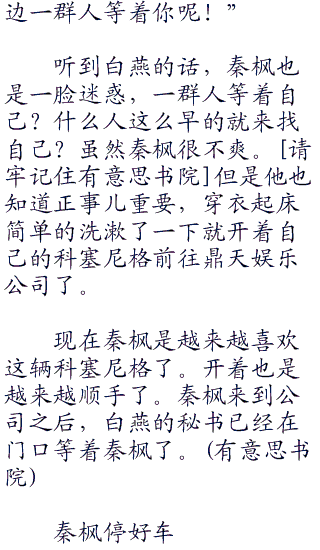 边一群人等着你呢！”
听到白燕的话，秦枫也
是一脸迷惑，一群人等着自
己？什么人这么早的就来找
自己？虽然秦枫很不爽。[请
牢记住有意思书院]但是他也
知道正事儿重要，穿衣起床
简单的洗漱了一下就开着自
己的科塞尼格前往鼎天娱乐
公司了。
现在秦枫是越来越喜欢
这辆科塞尼格了。开着也是
越来越顺手了。秦枫来到公
司之后，白燕的秘书已经在
门口等着秦枫了。(有意思书
院)
秦枫停好车